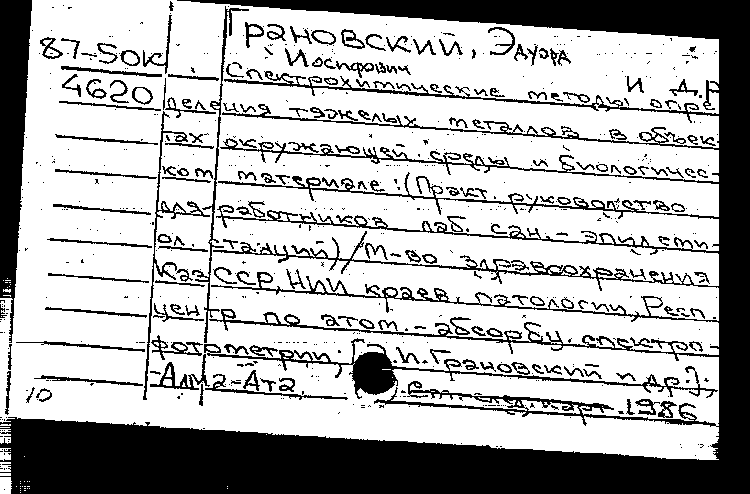 Грановский, Эдуард
87-50К Иосифович и др
4620 Спектрохимические методы опре
деления тяжелых металлов в объек-
тах окружающей среды и биологичес-
ком материале: (Практ. руководство
для работников лаб. сан.-эпидеми-
ол. станций) / М-во здравоохранения
КазССР, НИИ краев. патологии, Респ.
центр по атом.-абсорбц. спектро-
фотометрии; [Э.И. Грановский и др.];
Алма-Ата след. карт. 1986
10